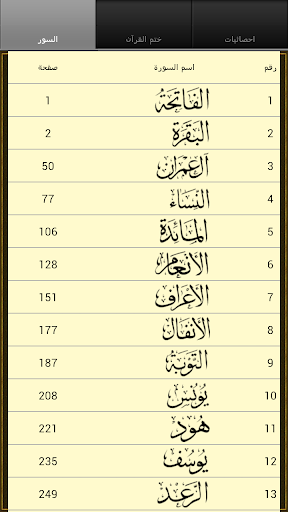 احصائيات ختم القرآن السور
رقم اسم السورة صفحة
1 الفَاتِحَة 1
2 البَقَرَة 2
3 آل عِمْرَان 50
4 النِّسَاء 77
5 المَائدة 106
6 الأنعَام 128
7 الأعراف 151
8 الأنفَال 177
9 التوبَة 187
10 يُونس 208
11 هُود 221
12 يُوسُف 235
13 الرَّعد 249